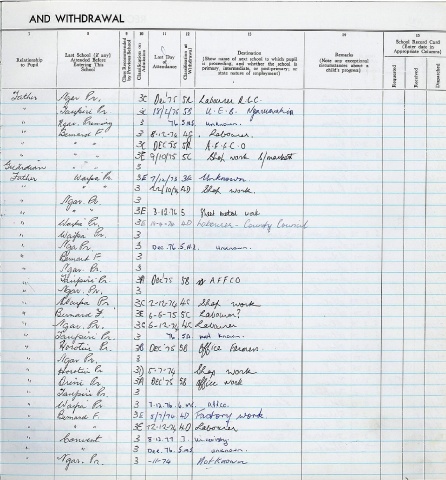 AND WITHDRAWAL
7 8 9 10 11 12 13 14 15
Relationship to Pupil
Last School (if any) Attended Before Entering This School
Class Recommended by Previous School
Last Day of Attendance
Classification at Withdrawal
Destination
(State name of next school to which pupil is proceeding, and whether the school is primary, intermediate, or post-primary; or state nature of employment)
Remarks
(Note any exceptional circumstances about a child's progress)
School Record Card
(Enter date in Appropriate Column)
Requested
Received
Despatched
Father Ngar Pr. 3C Dec '75 5R Labourer
" Taupiri Pr. 3C 5B N.E.B. Ngaruawahia
" 3 76 unknown.
" Bernard F 3 8.12.74 4C Labourer.
" " " 3C DEC 75 5R AFFCO
" " " 3E 9/10/75 5C Shop work
Guardian " " 3
Father Waipa Pr. 3E Unknown
" " " 3 4D Shop work.
" Ngar. Pr. 3
" " " 3E 3.12.76 5 Sheet metal work
" Waipa Pr. 3E 4D Labourer - County Council
" Waipa Pr. 3
" Nga. Pr. 3 Dec. 76 unknown.
" Bernard F 3
" Ngar. Pr. 3
" Taupiri Pr. 3A Dec 75 5B AFFCO
" Ngar. Pr. 3
" Pr. 3C 2-12-74 4C Shop work
" Bernard F. 3E 6-6-75 5C Labourer?
" Ngar. Pr. 3C 6-12-74 4C Labourer
" Taupiri Pr. 3 76 5A not known.
" Horotiu Pr. 3B DEC '75 5B Office
" Ngar Pr. 3
" Horotiu Pr. 3D 5-7-74 Shop work
" Orini Pr. 3A DEC '75 5B office work
" Taupiri Pr. 3
" Waipa Pr. 3 7.12.76 office.
" Bernard F. 3E 5/7/74 4D Factory work
" " " 3E 12-12-74 4D Labourer
" Convent 3 8.12.77 7. University
" " 3 Dec. 76 unknown.
" Ngar. Pr. 3 -11-74 Not Known